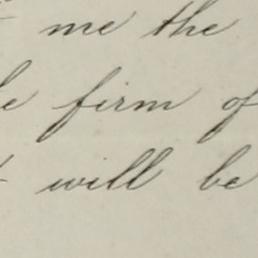 me the
firm of
will be